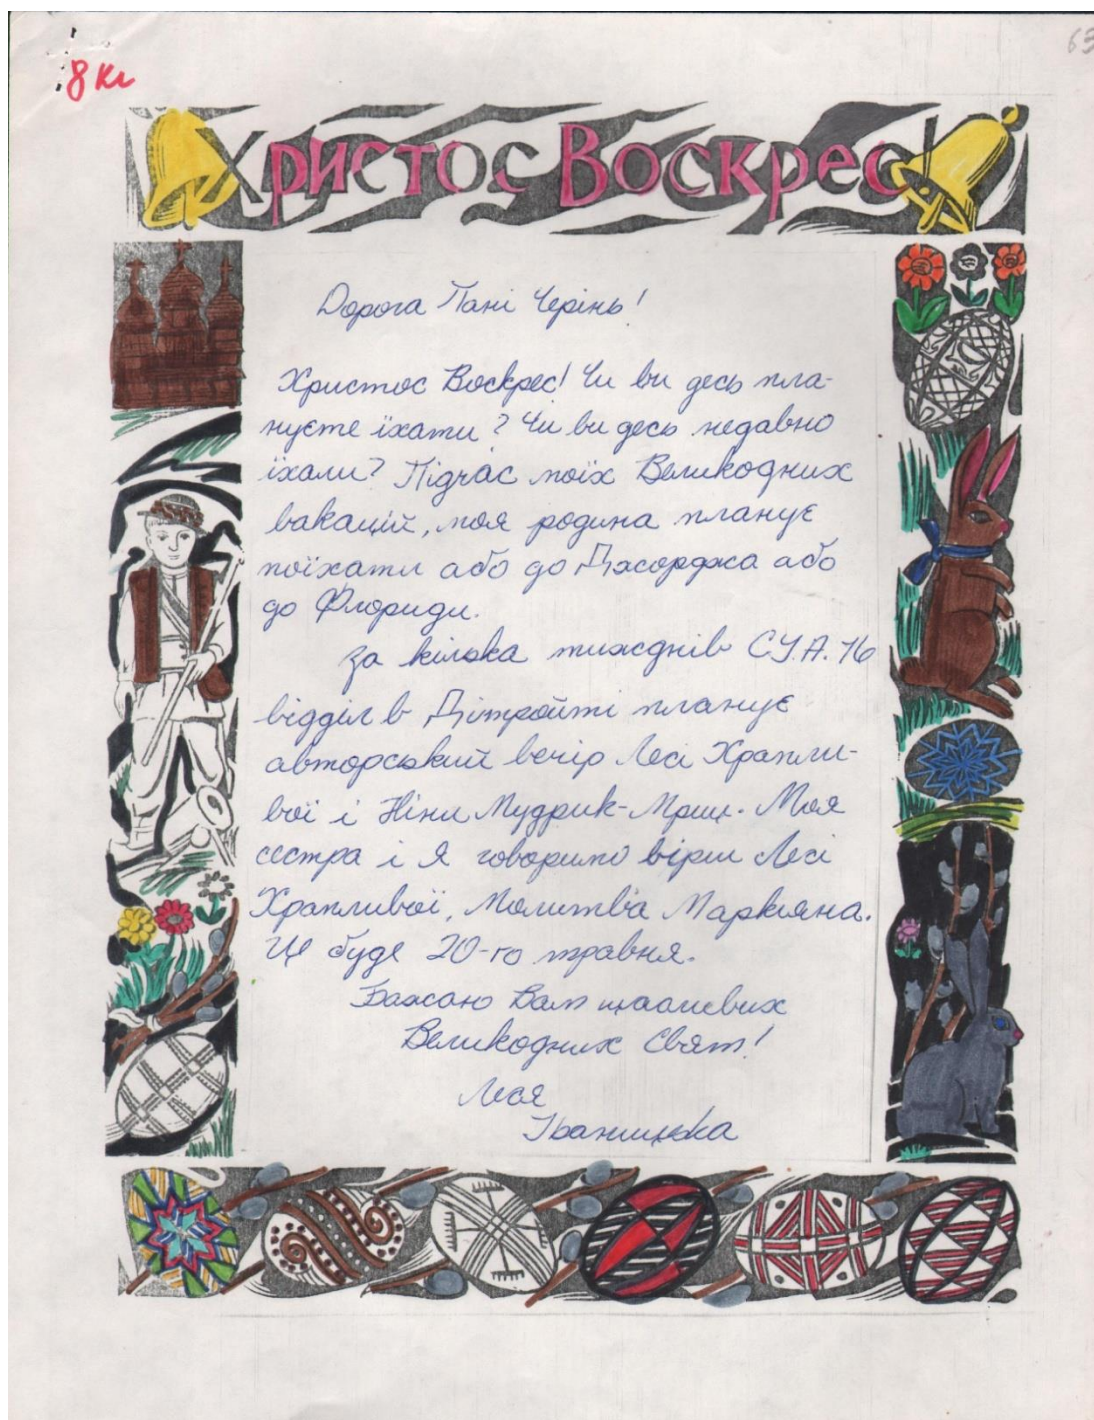 8 кл
63
Христос Воскрес!
Дорога Пані Черінь!
Христос Воскрес! Чи ви десь пла-
нуєте їхати? Чи ви десь недавно
їхали? Підчас моїх Великодних
вакацій, моя родина планує
поїхати або до Джорджа або
до Флориди.
За кілька тижднів С.У.А. 76
відділ в Дітройті планує
авторський вечір Лесі Храпли-
вої і Ніни Мудрик-Мриц. Моя
сестра і я говоримо вірш Лесі
Храпливої, Молитва Маркіяна.
Це буде 20-го травня.
Бажаю Вам щасливих
Великодних Свят!
Леся